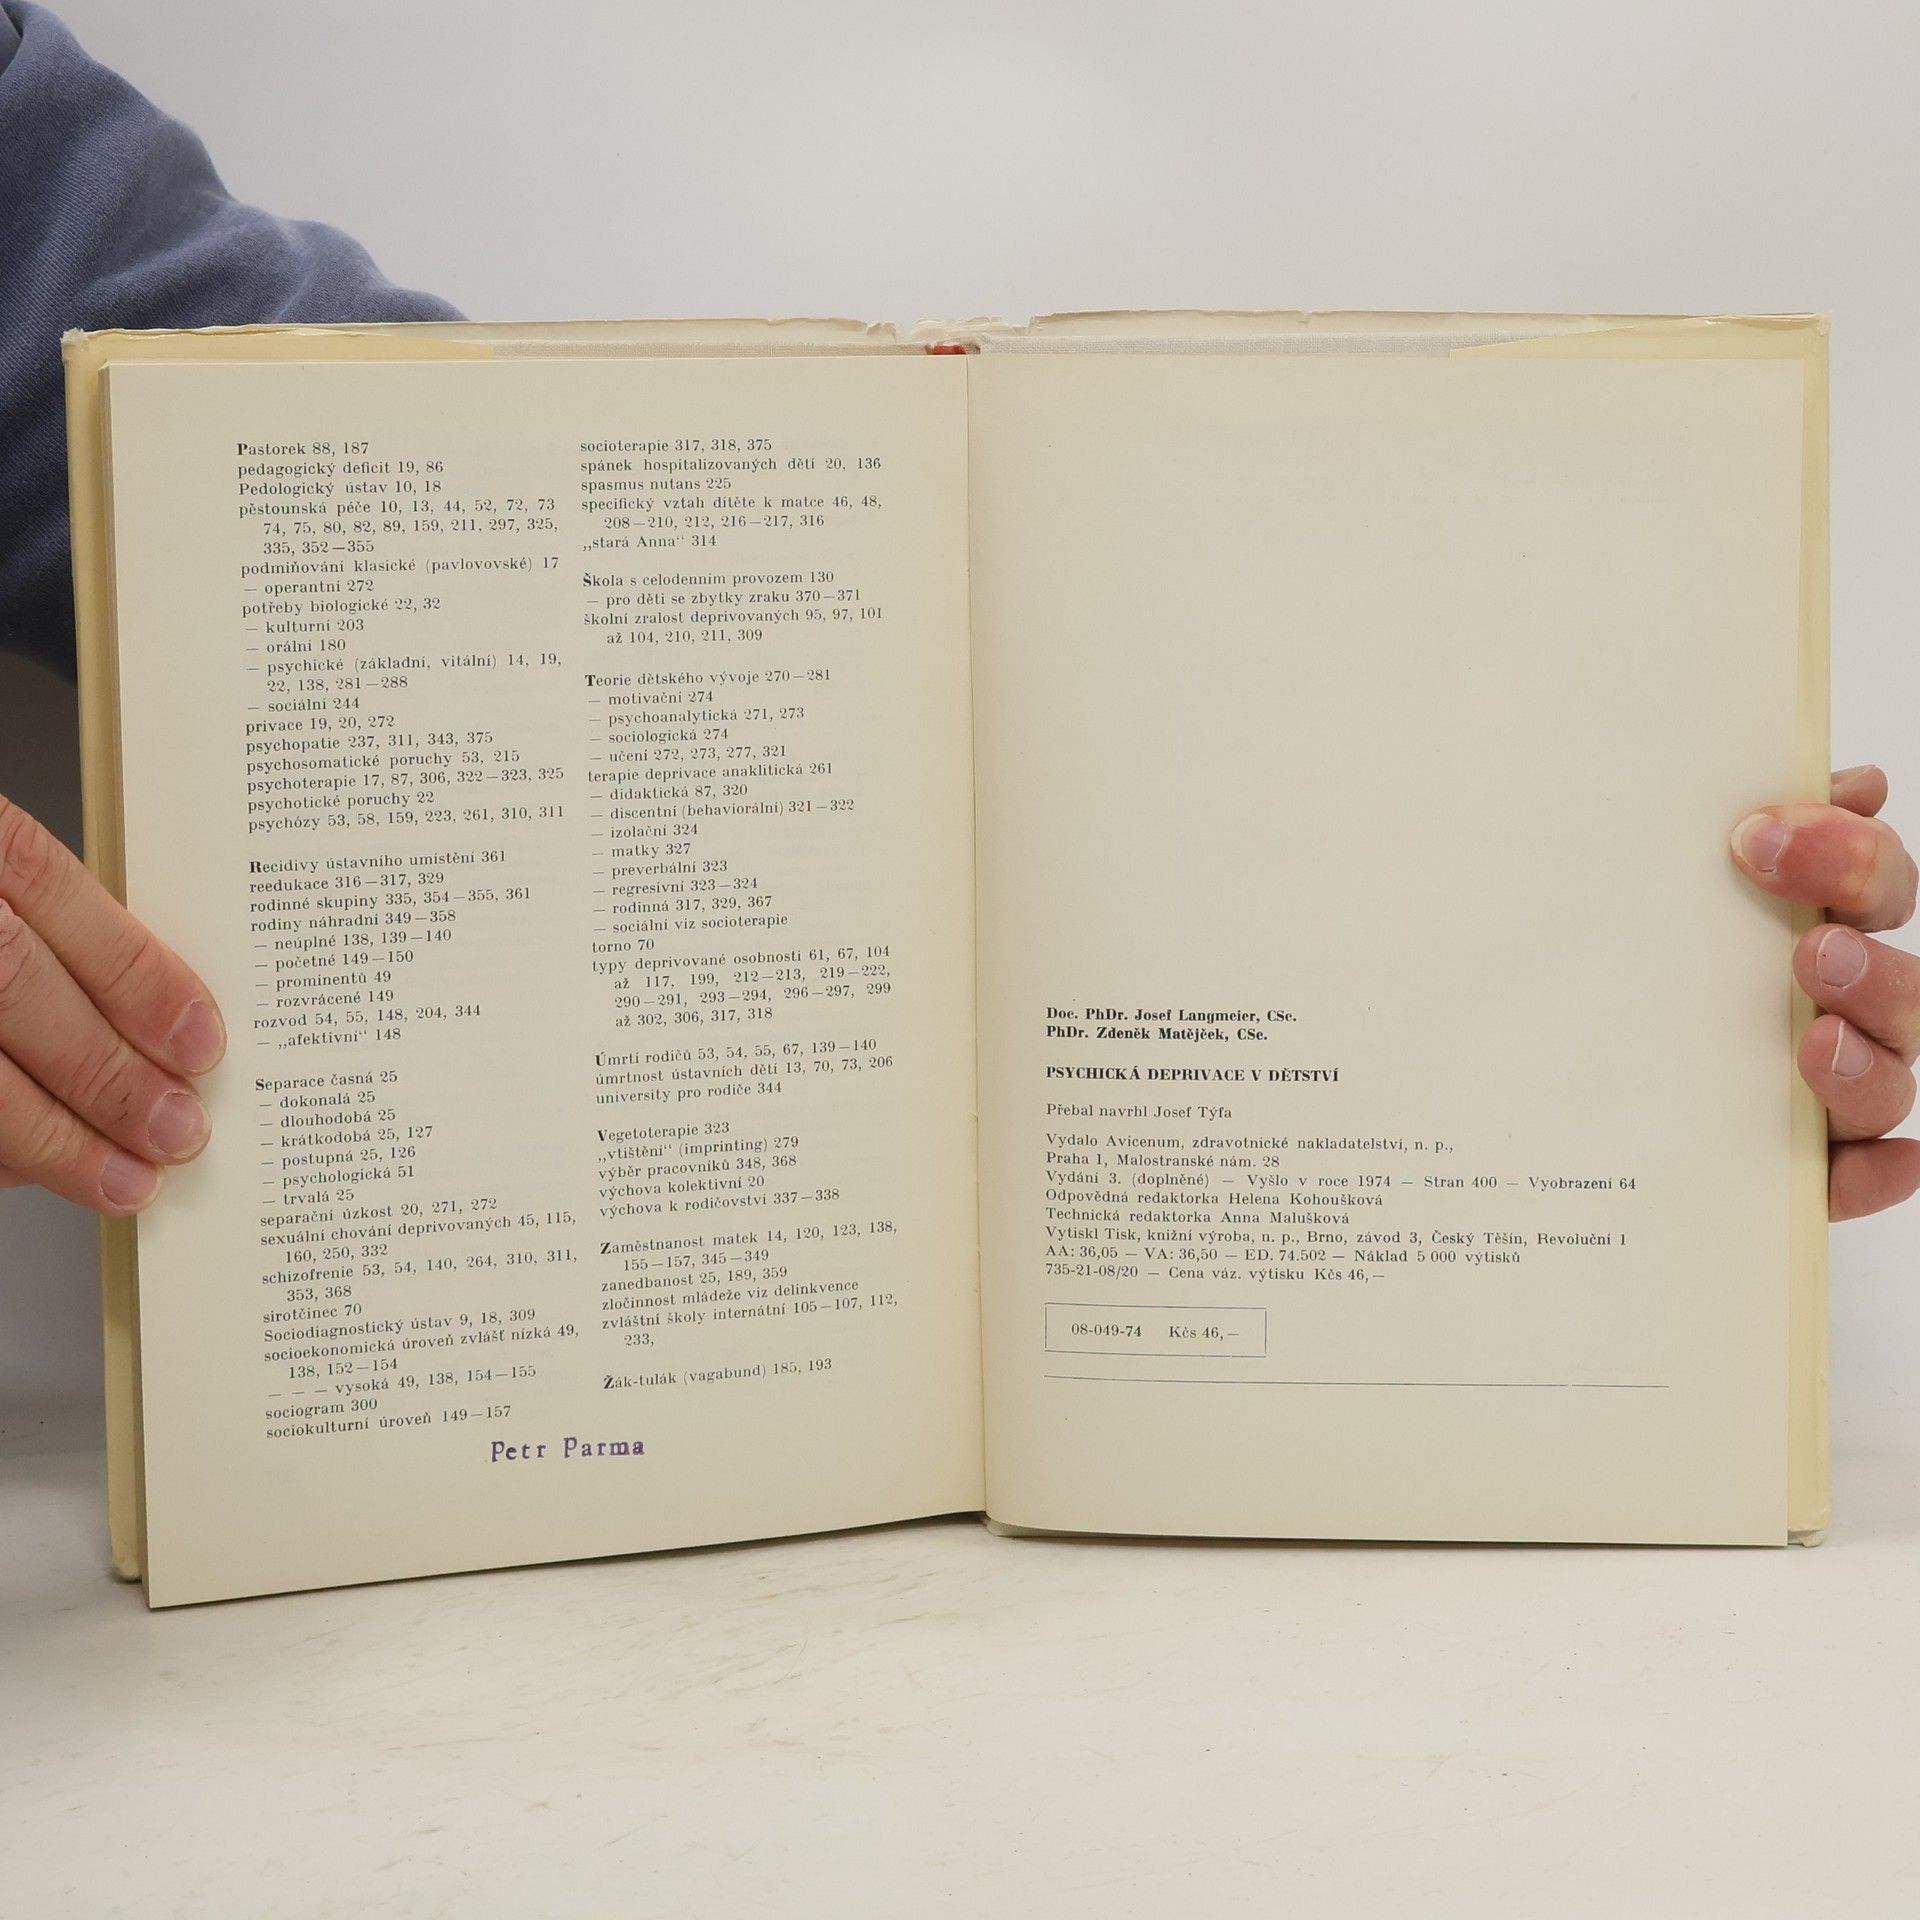 Pastorek 88, 187
pedagogický deficit 19, 86
Pedologický ústav 10, 18
pěstounská péče 10, 13, 44, 52, 72, 73
74, 75, 80, 82, 89, 159, 211, 297, 325,
335, 352—355
podmiňování klasické (pavlovovské) 17
— operantní 272
potřeby biologické 22, 32
— kulturní 203
— orální 180
— psychické (základní, vitální) 14, 19,
22, 138, 281—288
— sociální 244
privace 19, 20, 272
psychopatie 237, 311, 343, 375
psychosomatické poruchy 53, 215
psychoterapie 17, 87, 306, 322—323, 325
psychotické poruchy 22
psychózy 53, 58, 159, 223, 261, 310, 311
Recidivy ústavního umístění 361
reedukace 316—317, 329
rodinné skupiny 335, 354—355, 361
rodiny náhradní 349—358
— neúplné 138, 139—140
— početné 149—150
— prominentů 49
— rozvrácené 149
rozvod 54, 55, 148, 204, 344
— „afektivní“ 148
Separace časná 25
— dokonalá 25
— dlouhodobá 25
— krátkodobá 25, 127
— postupná 25, 126
— psychologická 51
— trvalá 25
separační úzkost 20, 271, 272
sexuální chování deprivovaných 45, 115,
160, 250, 332
schizofrenie 53, 54, 140, 264, 310, 311,
353, 368
sirotčinec 70
Sociodiagnostický ústav 9, 18, 309
socioekonomická úroveň zvlášť nízká 49,
138, 152—154
— — — vysoká 49, 138, 154—155
sociogram 300
sociokulturní úroveň 149—157
socioterapie 317, 318, 375
spánek hospitalizovaných dětí 20, 136
spasmus nutans 225
specifický vztah dítěte k matce 46, 48,
208—210, 212, 216—217, 316
„stará Anna“ 314
Škola s celodenním provozem 130
— pro děti se zbytky zraku 370—371
školní zralost deprivovaných 95, 97, 101
až 104, 210, 211, 309
Teorie dětského vývoje 270—281
— motivační 274
— psychoanalytická 271, 273
— sociologická 274
— učení 272, 273, 277, 321
terapie deprivace anaklitická 261
— didaktická 87, 320
— discentní (behaviorální) 321—322
— izolační 324
— matky 327
— preverbální 323
— regresívní 323—324
— rodinná 317, 329, 367
— sociální viz socioterapie
torno 70
typy deprivované osobnosti 61, 67, 104
až 117, 199, 212—213, 219—222,
290—291, 293—294, 296—297, 299
až 302, 306, 317, 318
Úmrtí rodičů 53, 54, 55, 67, 139—140
úmrtnost ústavních dětí 13, 70, 73, 206
university pro rodiče 344
Vegetoterapie 323
„vtištění“ (imprinting) 279
výběr pracovníků 348, 368
výchova kolektivní 20
výchova k rodičovství 337—338
Zaměstnanost matek 14, 120, 123, 138,
155—157, 345—349
zanedbanost 25, 189, 359
zločinnost mládeže viz delinkvence
zvláštní školy internátní 105—107, 112,
233,
Žák-tulák (vagabund) 185, 193
Petr Parma
Doc. PhDr. Josef Langmeier, CSc.
PhDr. Zdeněk Matějček, CSc.
PSYCHICKÁ DEPRIVACE V DĚTSTVÍ
Přebal navrhl Josef Týfa
Vydalo Avicenum, zdravotnické nakladatelství, n. p.,
Praha 1, Malostranské nám. 28
Vydání 3. (doplněné) — Vyšlo v roce 1974 — Stran 400 — Vyobrazení 64
Odpovědná redaktorka Helena Kohoušková
Technická redaktorka Anna Malušková
Vytiskl Tisk, knižní výroba, n. p., Brno, závod 3, Český Těšín, Revoluční 1
AA: 36,05 — VA: 36,50 — ED. 74.502 — Náklad 5 000 výtisků
735-21-08/20 — Cena váz. výtisku Kčs 46,—
08-049-74 Kčs 46,—